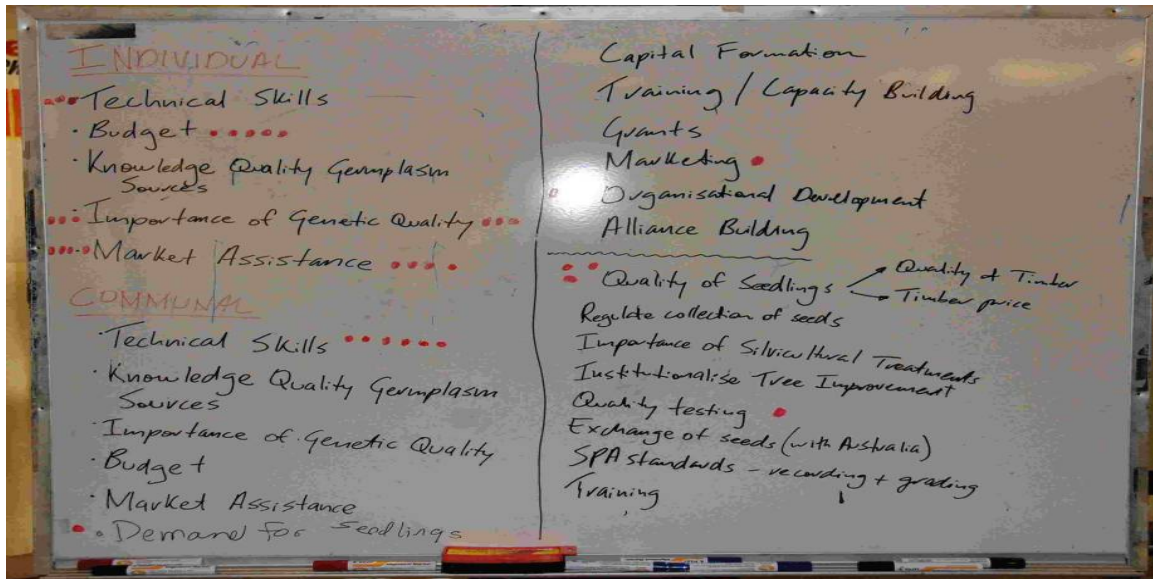 INDIVIDUAL
Technical Skills
· Budget
· Knowledge Quality Germplasm
Sources
· Importance of Genetic Quality
· Market Assistance
COMMUNAL
· Technical Skills
· Knowledge Quality Germplasm
Sources
· Importance of Genetic Quality
· Budget
· Market Assistance
· Demand for Seedlings
Capital Formation
Training / Capacity Building
Grants
Marketing
Organisational Development
Alliance Building
Quality of Seedlings → Quality of Timber
→ Timber price
Regulate collection of seeds
Importance of Silvicultural Treatments
Institutionalise Tree Improvement
Quality testing
Exchange of seeds (with Australia)
SPA standards - recording + grading
Training